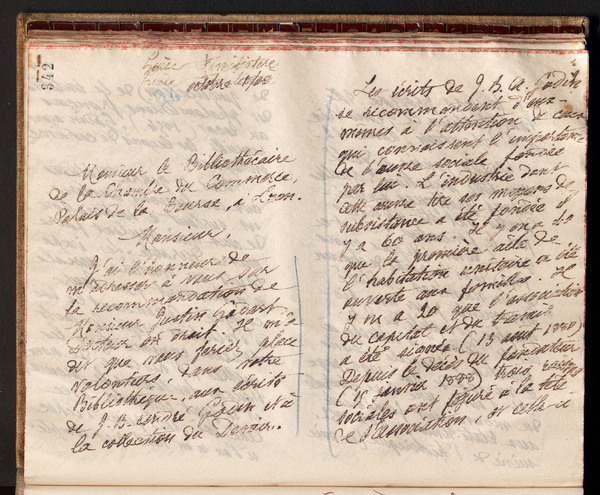 342
octobre 1900
Monsieur le Bibliothécaire
de la Chambre du Commerce,
Palais de la Bourse, à Lyon.
Monsieur,
J'ai l'honneur de
m'adresser à vous sur
la recommandation de
Monsieur Justin Godart
Docteur en droit. Il m'a
dit que vous feriez place
volontiers, dans votre
Bibliothèque, aux écrits
de J. B. André Godin et à
la collection du Devoir.
Les écrits de J. B. A. Godin
se recommandent d'eux
mêmes à l'attention de ceux
qui connaissent l'importance
de l'œuvre sociale fondée
par lui. L'industrie dont
cette œuvre tire ses moyens de
subsistance a été fondée il
y a 60 ans. Il y en a 40
que la première aile de
l'habitation unitaire a été
ouverte aux familles. Il
y en a 20 que l'association
du capital et du travail
a été signée (13 août 1880)
Depuis le décès du fondateur
(15 janvier 1888) trois
sociales ont figuré à la tête
de l'association, et celle-ci